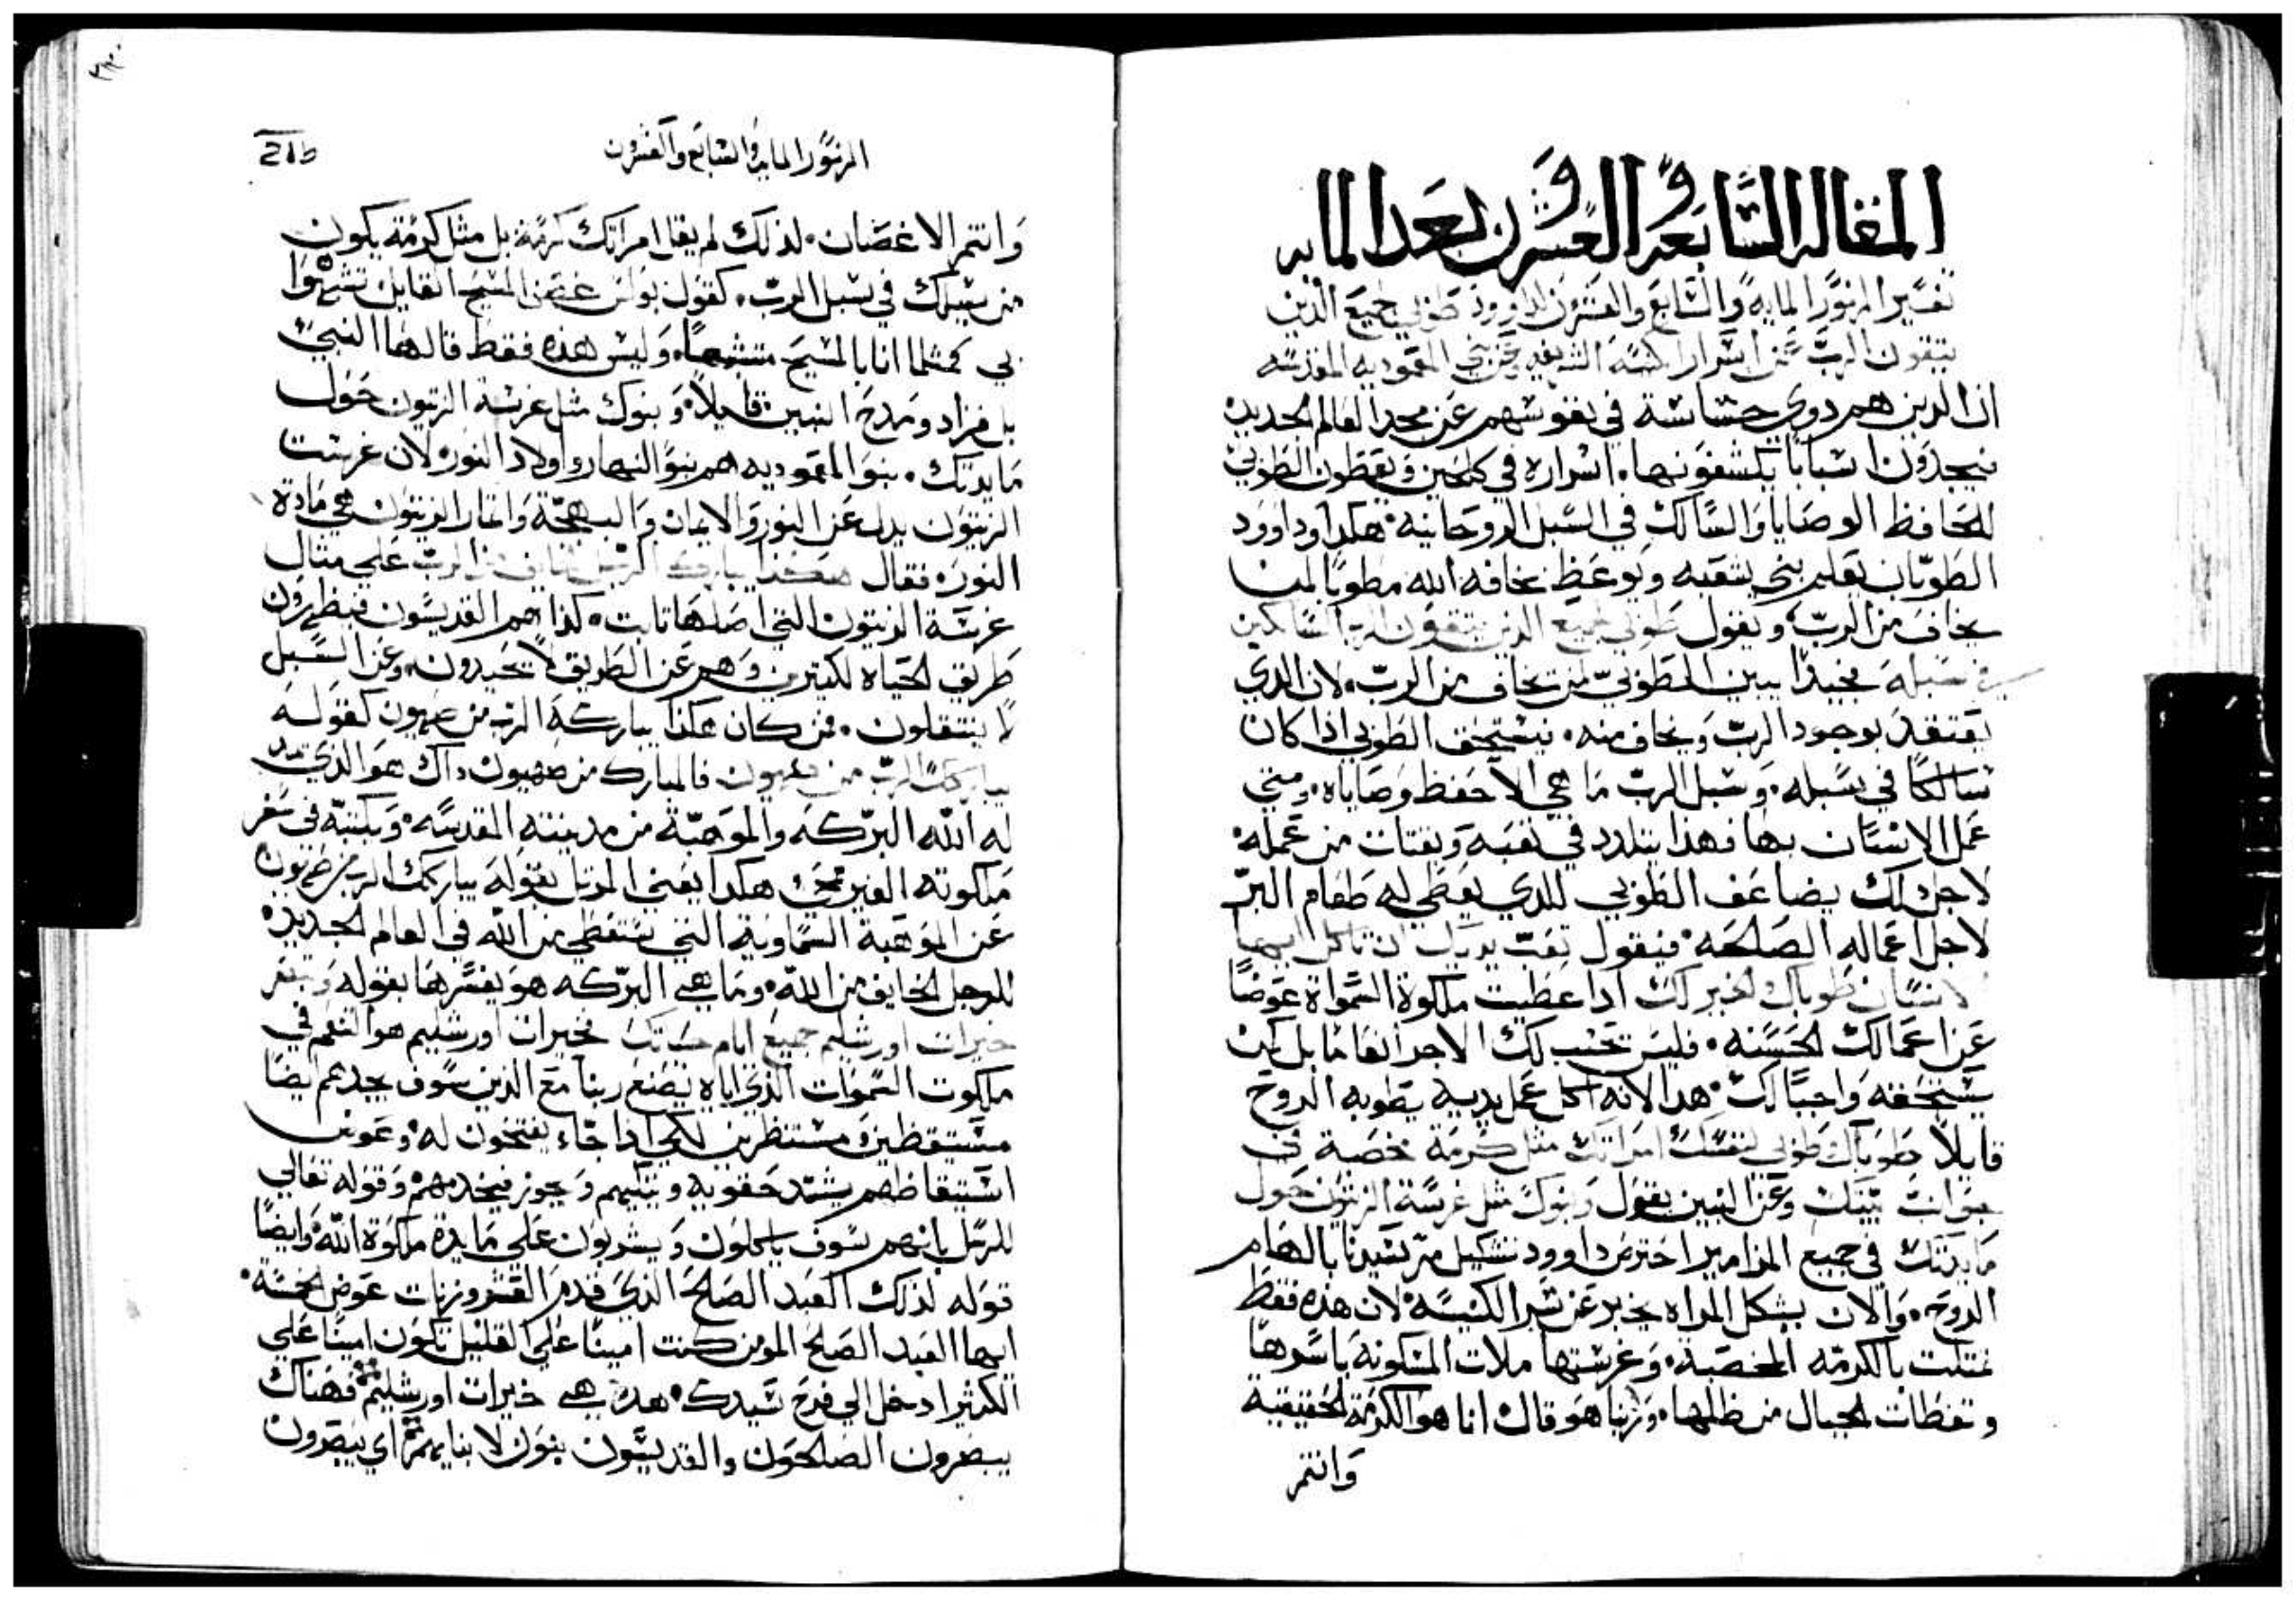 المقاله السَّابعه والعشرون بعد المايه
تفسير المزمور المايه والسَّابع والعشرون لداوود طوبي لجميع الذين
يتقون الربّ عن اسرار الكنيسَه الشريفه وعن بني المعموديه المقدسَه
ان الدين هم دوي حسَّاسَة في نفوسهم عن مجد العالم الجديد
فيجدون اسبابًا يكشفونها. اسراره في كلحين ويعَطون الطَوبيْ
للحَافظ الوصَايا وَالسَّالك في السبل الروحَانية. هكدا داوود
الطَوبان يعَلم بني شعَبه ويوعَظ بمخافه الله مطوبًا لمن
يخاف من الربّ ويقول طوبي لجميع الدين يتقون الربّ السَّالكين
في سَبله فجيدًا يبين الطَوبيّ لمن يخاف من الربّ. لان الدي
يعتقد بوجود الربّ ويخاف منه. يستحق الطَوبي اذا كان
سَالكًا في سَبله. وسَبل الربّ ما هي الا حَفظ وصَاياه. ومتي
عمل الانسَان بها فهدا يتلدد في تعَبه ويقتات من عَمله
لاجل دلك يضاعَف الطَوبي للدي يعَطي له طعَام البرّ
لاجل اعَماله الصَالحَه فيقول تعَب يديك ان تاكل ايها
الانسَان طوباك والخير لك ادا اعطيت ملكوة السَّمواة عوضًا
عَن اعَمالك الحَسَنه. فليسَ تحسَب لك الاجر انعَامًا بل كمن
يستحَقه واجبًا لك هدا لانه اكل عمل يديه يطَوبه الروح
قايلاً طوباك وطوبي لنفسَك امراتك مثل كرمَة مخصَبة في
جوانب بيتك وعَن البنين يقول وبنوك مثل غرسَة الزيتون حَول
مايدتك في جميع المزامير احترسَ داوود بشكيل مرتسَيدنا بالهام
الروح. والان بشكل المراه يخبر عَن سَر الكنيسَة لان هده فقط
تمتلت بالكرمَه المخصَبة. وغرسَتها ملات المسكونه باسَرها
وتغطات الجبال من ظلها. وربنا هو قال انا هو الكرمَة الحَقيقية
وَانتم
المزمور المايه والسَّابع والعشرون
215
وَانتم الاغصَان. لدلك لم يقل امراتك كرمَة بل مثل كرمَة يكون
من يسَلك في سَبل الربّ. كقول بولسَ غصَن المسَيح القايل تشبهوا
بي كمثلما انا بالمسَيح متشبهًا. وليسَ هذه فقط قالها النبيّ
بل فزاد ومَدح البنين قايلاً وبنوك مثل غرسَة الزيتون حَول
مايدتك. بنو المعموديه هم بنو النهار واولاد النور لان غرسَت
الزيتون يدل عَن النور والايمان والبهجَة واتمار الزيتون هي مادة
النور. فقال هكدا يبارك الرجل الخايف من الربّ عَلي مثال
غرسَة الزيتون التي اصَلها تابت. كدا هم القديسَون فيظهرون
طريق الحَياه لكتيرين وهم عَن الطريق لا يحَيدون. وعَن السَبل
لا ينتقلون. فمن كان هكدا يباركه الرب من صهيون كقوله
يباركك الربّ من صهيون فالمبارك من صهيون داك هو الدي
له الله البرّكه والموهبَة من مدينته المقدسَه. ويكتبه في سَفر
ملكوته الغير هكدا يعَني المرتل بقوله يباركك الرب من صهيون
عَن الموهبَة السَّماوية التي سَتعَطي من الله في العالم الجديد.
للرجل الخايف من الله. وما هي البرّكه هو يفسَّرها بقوله وتبصَر
خيرات اورشليم جميع ايام حَياتك خيرات اورشليم هو النعَم في
ملكوت السَّموات الذي اياه يصَنع ربنا مع الدين سَوف يجدهم ايضًا
مسَتيقظين ومسَتنظرين لكي ادا جاء يفتحَون له. وعَوض
اسَتيقاظهم يشدّ حَقويه ويتكيهم ويجوز فيخدمهم وقوله تعَالي
للرسَل بانهم سَوف ياكلون ويشربون عَلي مايدة ملكوة الله وايضًا
قوله لدلك العَبد الصَالح الذي قدم العَشر وزنات عَوض الخمسَة.
ايها العَبد الصَالح المومن كنت امينًا عَلي القليل تكون امينًا عَلي
الكثير ادخل الي فرح سَيدك. هده هي خيرات اورشليم فهناك
يبصَرون الصَالحَون والقديسَّون بنون لابنايهم اي يبصَرون